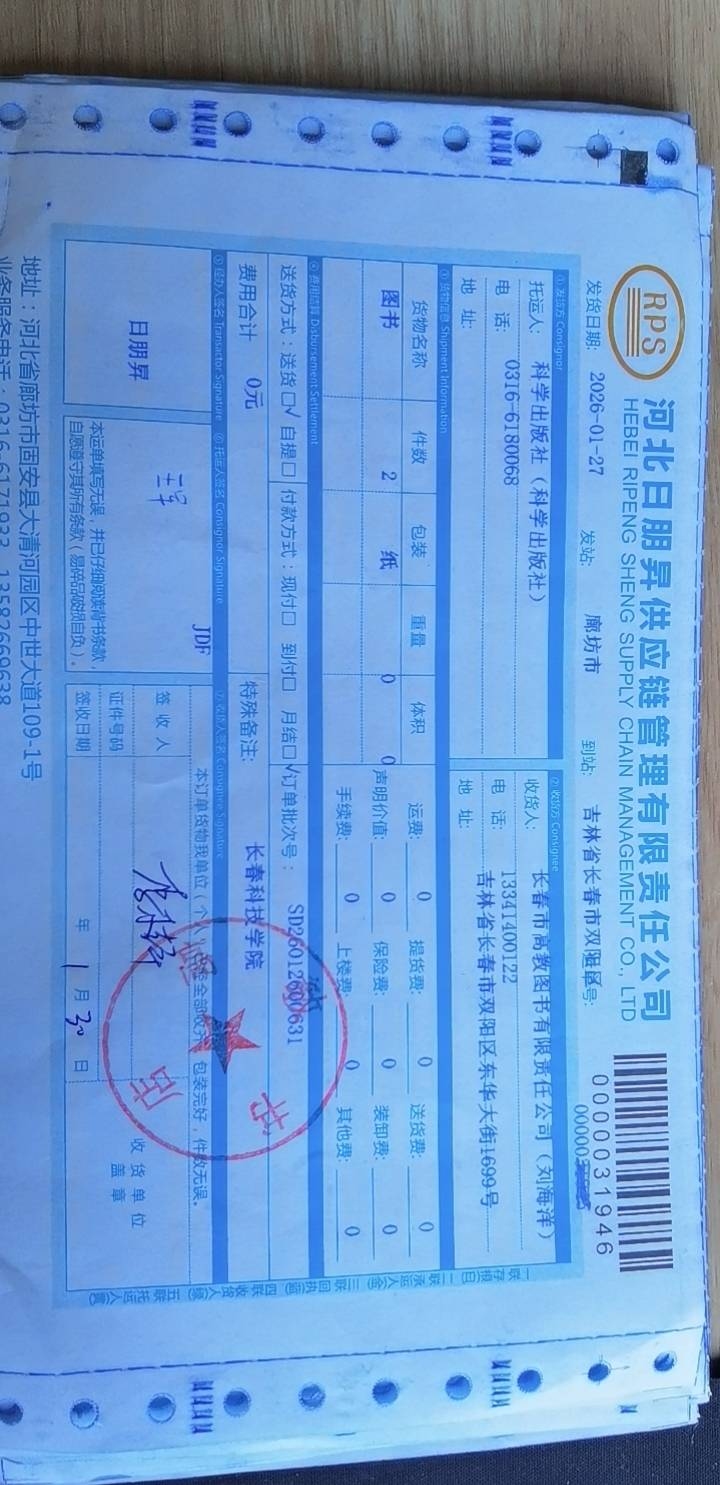 RPS
河北日朋昇供应链管理有限责任公司
HEBEI RIPENG SHENG SUPPLY CHAIN MANAGEMENT CO., LTD
0000031946
发货日期: 2026-01-27 发站: 廊坊市 到站: 吉林省长春市双阳区 号:
① 发货方 Consignor ② 收货方 Consignee
托运人: 科学出版社(科学出版社) 收货人: 长春市高教图书有限责任公司(刘海洋)
电 话: 0316-6180068 电 话: 13341400122
地 址: 地 址: 吉林省长春市双阳区东华大街1699号
③ 货物信息 Shipment Information
货物名称 件数 包装 重量 体积 运费: 0 提货费: 0 送货费: 0
图书 2 纸 0 0 声明价值: 0 保险费: 0 装卸费: 0
手续费: 0 上楼费: 0 其他费: 0
④ 费用结算 Disbursement Settlement
送货方式:送货□√ 自提□ 付款方式:现付□ 到付□ 月结□√ 订单批次号: SD26012600631
费用合计 0元 特殊备注: 长春科技学院
⑤ 经办人签名 Transactor Signature ⑥ 托运人签名 Consignor Signature ⑦ 收货人签名 Consignee Signature
日朋昇
JDF
本运单填写无误,并已仔细阅读背书条款,
自愿遵守其所有条款(易碎品破损自负)。
本订单货物我单位(个人)已全部收齐,包装完好,件数无误。
签 收 人
证件号码
签收日期 年 1 月 30 日
收货单位
盖 章
书 店
一联存根(白) 二联承运人(金) 三联回执(蓝) 四联收货人(绿) 五联托运人(黄)
地址:河北省廊坊市固安县大清河园区中世大道109-1号
业务服务电话:0316-6171933 13582669638